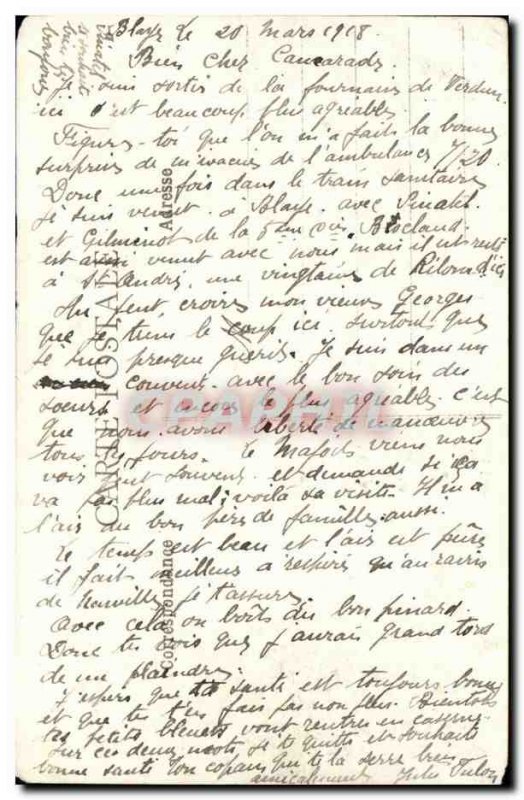 Blaye le 20 Mars 1918
Bien cher Camarade
Je suis sortis de la fournaise de Verdun
ici c'est beaucoup plus agréable
Figures-toi que l'on m'a faits la bonne
surprise de m'évacuer de l'ambulance 7/20
Donc une fois dans le train sanitaire
Je suis venut à Blaye avec
et de la 5eme Cie
est venut avec nous mais il est resté
à St André une vingtaine de Kilom d'ici
Au peut croire mon vieux Georges
que je tiens le coup ici surtout que
je suis presque guéris. Je suis dans un
couvent avec le bon soin des
soeurs et encore le plus agréable c'est
que nous avons liberté de manoeuvre
tous les jours. Le Major viens nous
voir souvent et demande si ça
va pas plus mal; voilà sa visite. Il m'a
l'air du bon père de famille aussi.
Le temps est beau et l'air est pure
il fait meilleur a respirer qu'au ravin
de je t'assure.
Avec cela on boits du bon pinard.
Donc tu vois que j'aurais grand tord
de me plaindre.
J'espère que ta santé est toujours bonne
et que tu t'en fais pas non plus. Bientôt
tes petits bleuets vont rentrer en
Sur ces deux mots je te quitte et souhaite
bonne santé ton copain qui te la serre bien
amicalement Jules
toujours
CARTE POSTALE
Correspondance
Adresse
CPAPHIL